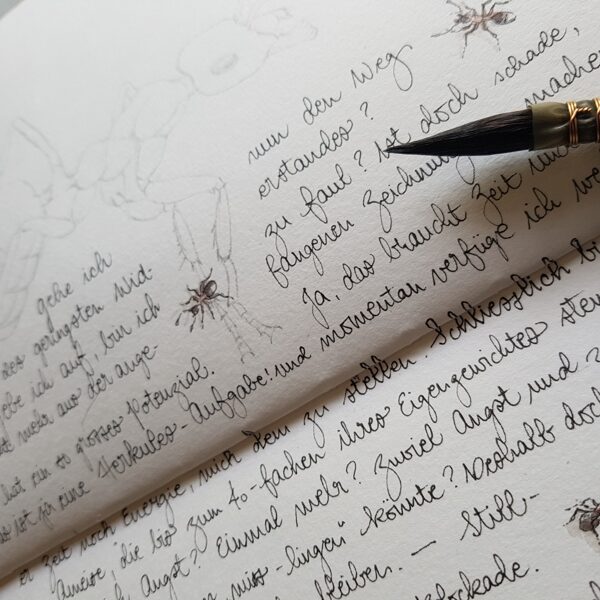 nun den Weg
erstandes?
zu faul? ist doch schade,
fangenen Zeichnung machen
Ja, das braucht Zeit und
und momentan verfüge ich we
gehe ich
des geringsten Wid-
gebe ich auf, bin ich
mehr aus der ange-
hat ein so grosses Potenzial.
ist für eine Herkules-Aufgabe!
er Zeit noch Energie, mich dem zu stellen. Schliesslich bi
Ameise, die bis zum 40-fachen ihres Eigengewichtes stem
Angst? Einmal mehr? Zuviel Angst und
miss-lingen" könnte? Deshalb doch
bleiben. — Still-
blockade.